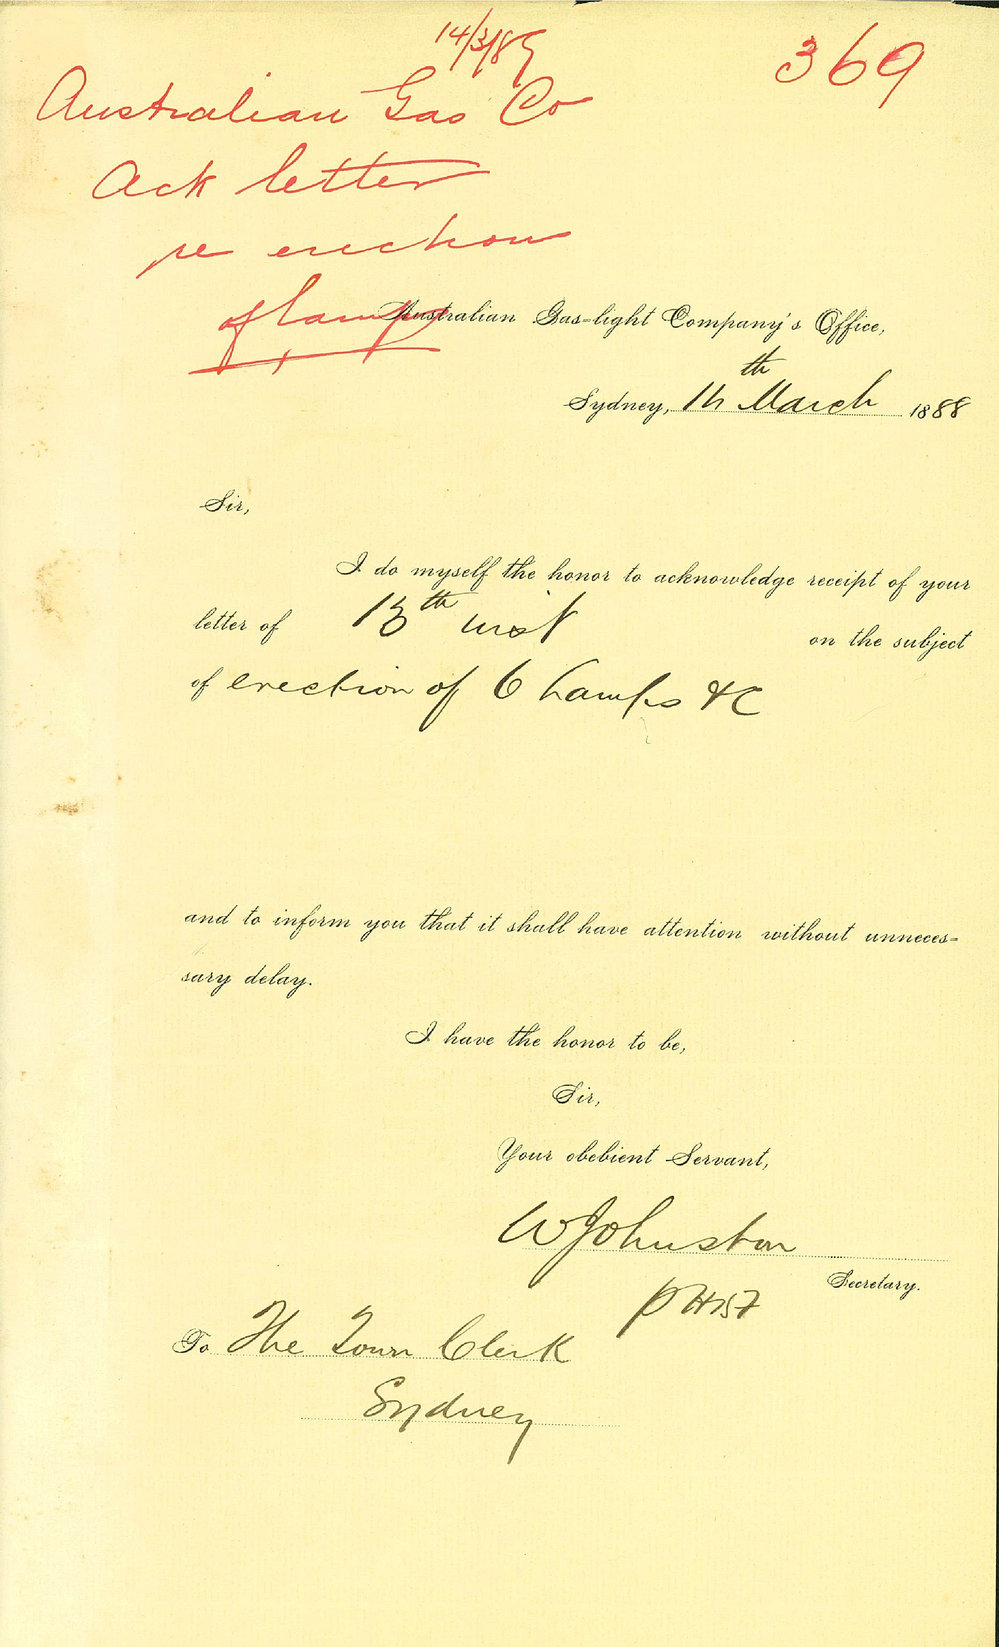 14/3/89
369
Australian Gas Co
Ack letter
re erection
of lamps
Australian Gas-light Company's Office,
Sydney, 14th March 1888
Sir,
I do myself the honor to acknowledge receipt of your
letter of 13th inst on the subject
of erection of 6 Lamps &c
and to inform you that it shall have attention without unneces=
sary delay.
I have the honor to be,
Sir,
Your obebient Servant,
W Johnston
Secretary.
To The Town Clerk
Sydney